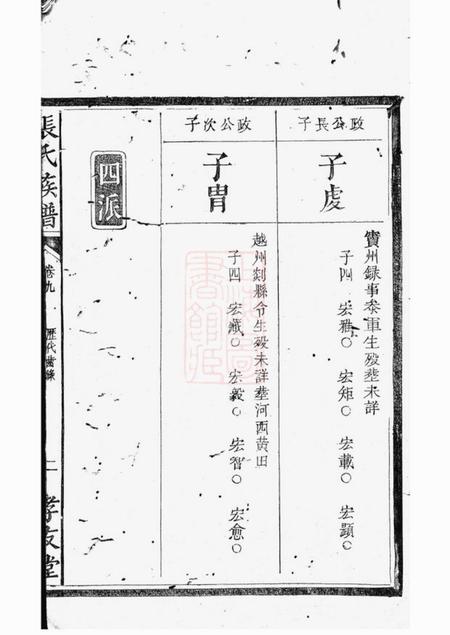 政公長子
子虔
寳州録事参軍生殁塟未詳
子四 宏雅○ 宏矩○ 宏載○ 宏顯○
政公次子
子胄
越州剡縣令生殁未詳塟河西黄田
子四 宏藏○ 宏毅○ 宏智○ 宏愈○
四派
張氏族譜
卷九
歷代
孝友堂